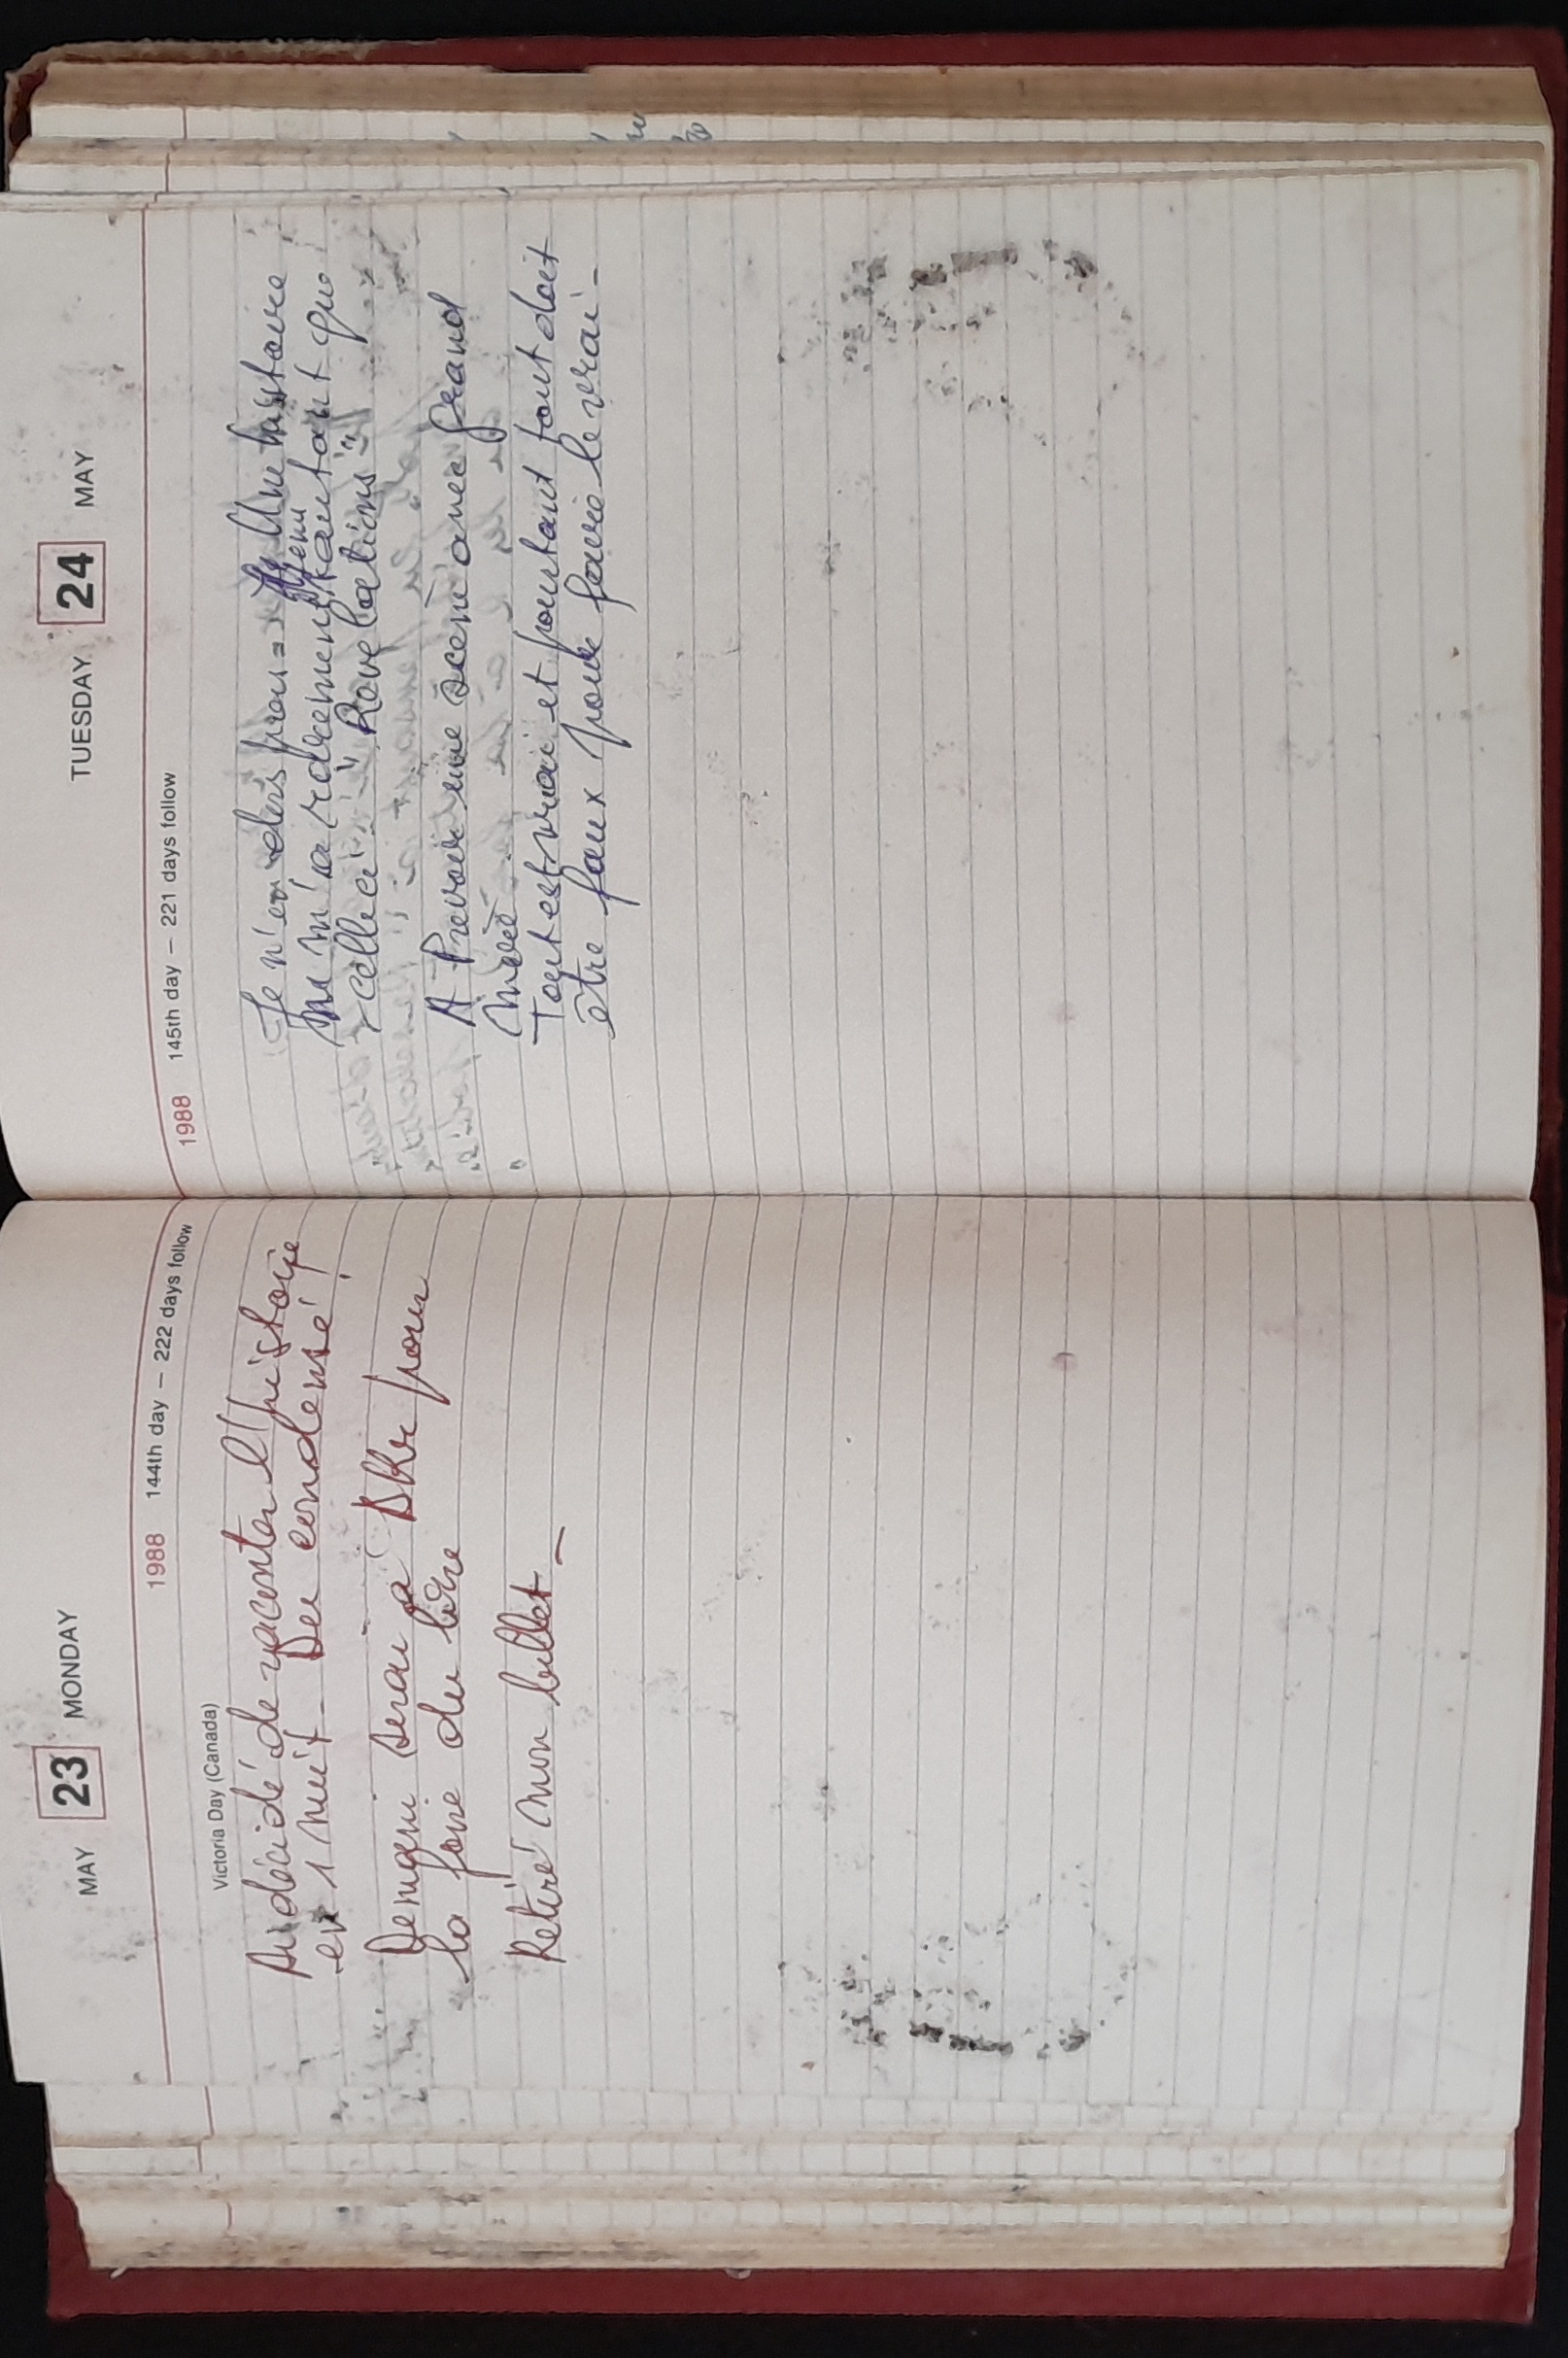 MAY 23 MONDAY
1988 144th day – 222 days follow
Victoria Day (Canada)
Ai décidé de raconter l'histoire
en 1 nuit – Du condensé!
Demain serai à Dkr pour
la foire du livre
Retiré mon billet –
TUESDAY 24 MAY
1988 145th day – 221 days follow
Je n'en dors pas = Une histoire
ne m'a rarement tenu autant que
celle ci "Revelations"
A Prevoir une scene avec grand
mère
Tout est vrai et pourtant tout doit
être faux pour faire le vrai –